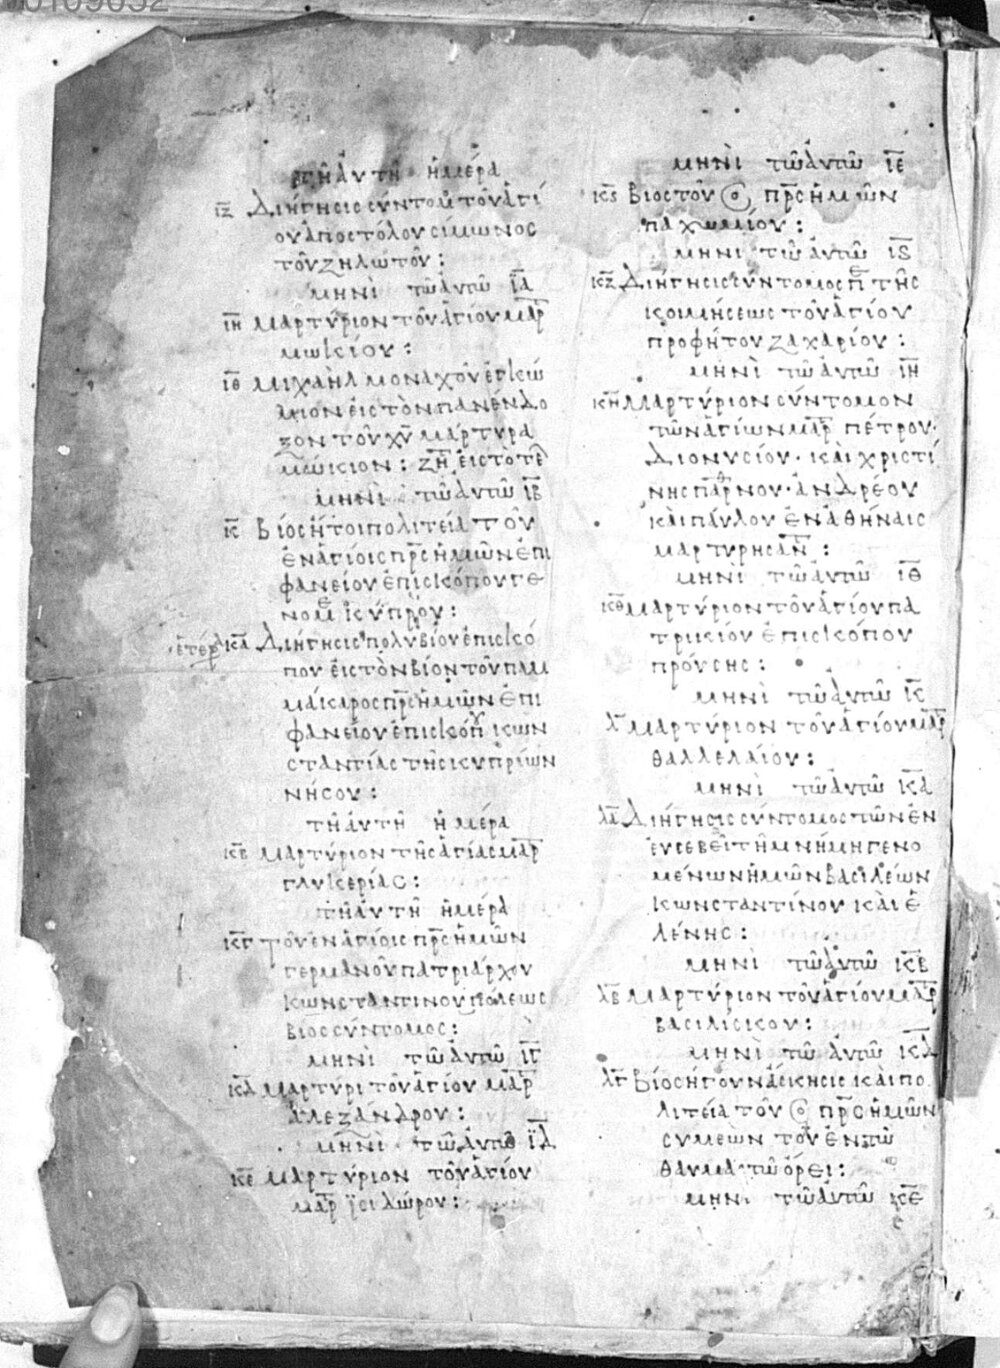 τῆ ἀυτῆ ἡμέρα
ιζ Διήγησις σύντομ τοῦ ἁγί
ου ἀποστόλου σίμωνος
τοῦ ζηλωτοῦ :
μηνὶ τῶ ἀυτῶ ια
ιη μαρτύριον τοῦ ἁγίου μαρ
μωκίου :
ιθ μιχαὴλ μοναχοῦ ἐγκώ
μιον εἰς τὸν πανένδο
ξον τοῦ χυ μάρτυρα
μώκιον : ζη εἰς τὸ τε
μηνὶ τῶ ἀυτῶ ιβ
κ Βίος ἤτοι πολιτεία τοῦ
ἐν ἁγίοις πρς ἡμῶν ἐπι
φανείου ἐπισκόπου γε
νομ κύπρου :
ἑτερ κα Διήγησις πολυβίου ἐπισκό
που εἰς τὸν βίον τοῦ παμ
μάκαρος πρς ἡμῶν ἐπι
φανείου ἐπισκόπ κων
σταντίας τῆς κυπρίων
νήσου :
τῆ ἀυτῆ ἡμέρα
κβ μαρτύριον τῆς ἁγίας μαρ
γλυκερίας :
τῆ ἀυτῆ ἡμέρα
κγ τοῦ ἐν ἁγίοις πρς ἡμῶν
γερμανοῦ πατριάρχου
κωνσταντινουπόλεως
βίος σύντομος :
μηνὶ τῶ ἀυτῶ ιγ
κδ μαρτύρι τοῦ ἁγίου μαρ
ἀλεξάνδρου :
μηνὶ τῶ ἀυτῶ ιδ
κε μαρτύριον τοῦ ἁγίου
μαρ ϊσιδώρου :
μηνὶ τῶ ἀυτῶ ιε
κς Βίος τοῦ πρς ἡμῶν
παχωμίου :
μηνὶ τῶ ἀυτῶ ις
κζ Διήγησις σύντομος π τῆς
κοιμήσεως τοῦ ἁγίου
προφήτου ζαχαρίου :
μηνὶ τῶ ἀυτῶ ιη
κη Μαρτύριον σύντομον
τῶν ἁγίων μαρ πέτρου·
Διονυσίου· καὶ χριστί
νης παρνου· ἀνδρέου
καὶ παύλου ἐν ἀθήναις
μαρτυρησαν :
μηνὶ τῶ ἀυτῶ ιθ
κθ μαρτύριον τοῦ ἁγίου πα
τρικίου ἐπισκόπου
προύσης :
μηνὶ τῶ ἀυτῶ κ
λ μαρτύριον τοῦ ἁγίου μαρ
θαλλελαίου :
μηνὶ τῶ ἀυτῶ κα
λα Διήγησις σύντομος τῶν ἐν
ἐυσεβεῖ τῆ μνήμη γενο
μένων ἡμῶν βασιλέων
κωνσταντίνου καὶ ἑ
λένης :
μηνὶ τῶ ἀυτῶ κβ
λβ μαρτύριον τοῦ ἁγίου μαρ
βασιλίσκου :
μηνὶ τῶ ἀυτῶ κδ
λγ Βίος ἤγουν ἄσκησις καὶ πο
λιτεία τοῦ πρς ἡμῶν
συμεὼν τοῦ ἐν τῶ
θαυματῶ ὄρει :
μηνὶ τῶ ἀυτῶ κε